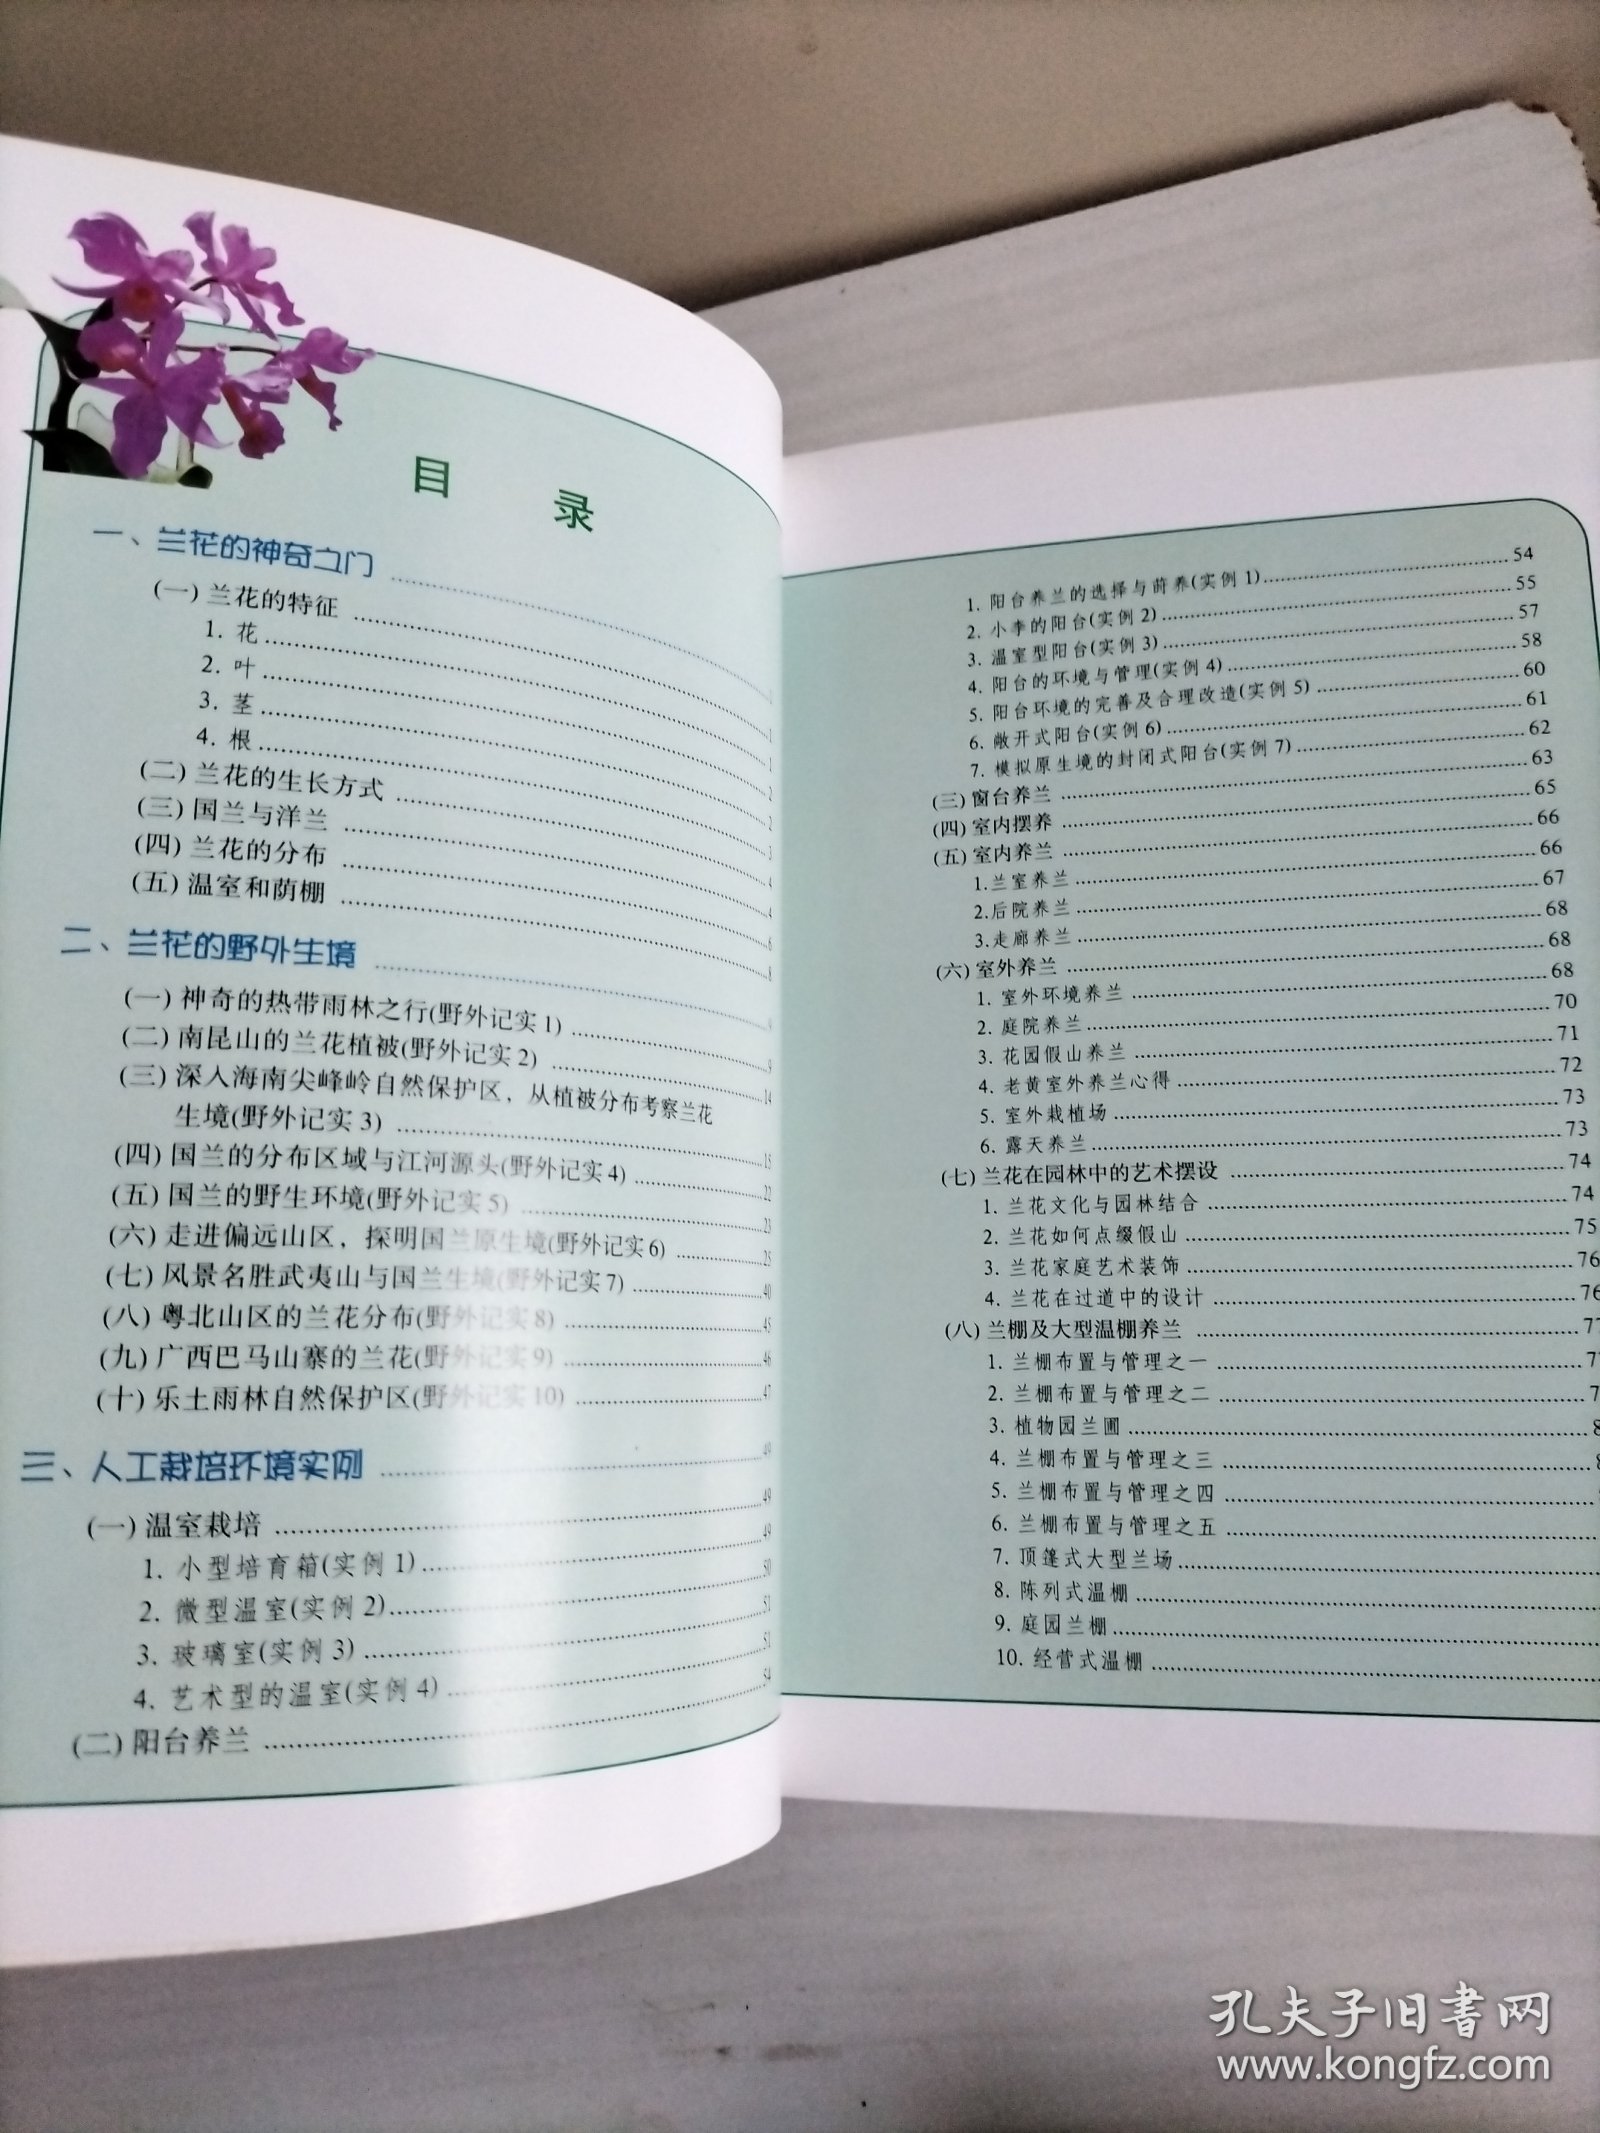 目 录
一、兰花的神奇之门
(一)兰花的特征 1
1. 花 1
2. 叶 1
3. 茎 2
4. 根 2
(二)兰花的生长方式 3
(三)国兰与洋兰 4
(四)兰花的分布
(五)温室和荫棚
二、兰花的野外生境
(一)神奇的热带雨林之行(野外记实1)
(二)南昆山的兰花植被(野外记实2)
(三)深入海南尖峰岭自然保护区，从植被分布考察兰花
生境(野外记实3) 15
(四)国兰的分布区域与江河源头(野外记实4) 22
(五)国兰的野生环境(野外记实5) 23
(六)走进偏远山区，探明国兰原生境(野外记实6) 25
(七)风景名胜武夷山与国兰生境(野外记实7) 40
(八)粤北山区的兰花分布(野外记实8) 45
(九)广西巴马山寨的兰花(野外记实9) 46
(十)乐土雨林自然保护区(野外记实10) 47
三、人工栽培环境实例 49
(一)温室栽培 49
1. 小型培育箱(实例1) 49
2. 微型温室(实例2) 50
3. 玻璃室(实例3)
4. 艺术型的温室(实例4)
(二)阳台养兰 54
1. 阳台养兰的选择与莳养(实例1) 54
2. 小李的阳台(实例2) 55
3. 温室型阳台(实例3) 57
4. 阳台的环境与管理(实例4) 58
5. 阳台环境的完善及合理改造(实例5) 60
6. 敞开式阳台(实例6) 61
7. 模拟原生境的封闭式阳台(实例7) 62
(三)窗台养兰 63
(四)室内摆养 65
(五)室内养兰 66
1.兰室养兰 66
2.后院养兰 67
3.走廊养兰 68
(六)室外养兰 68
1. 室外环境养兰 68
2. 庭院养兰 70
3. 花园假山养兰 71
4. 老黄室外养兰心得 72
5. 室外栽植场 73
6. 露天养兰 73
(七)兰花在园林中的艺术摆设 74
1. 兰花文化与园林结合 74
2. 兰花如何点缀假山 75
3. 兰花家庭艺术装饰 76
4. 兰花在过道中的设计 76
(八)兰棚及大型温棚养兰 77
1. 兰棚布置与管理之一
2. 兰棚布置与管理之二
3. 植物园兰圃
4. 兰棚布置与管理之三
5. 兰棚布置与管理之四
6. 兰棚布置与管理之五
7. 顶篷式大型兰场
8. 陈列式温棚
9. 庭园兰棚
10. 经营式温棚
孔夫子旧书网
www.kongfz.com